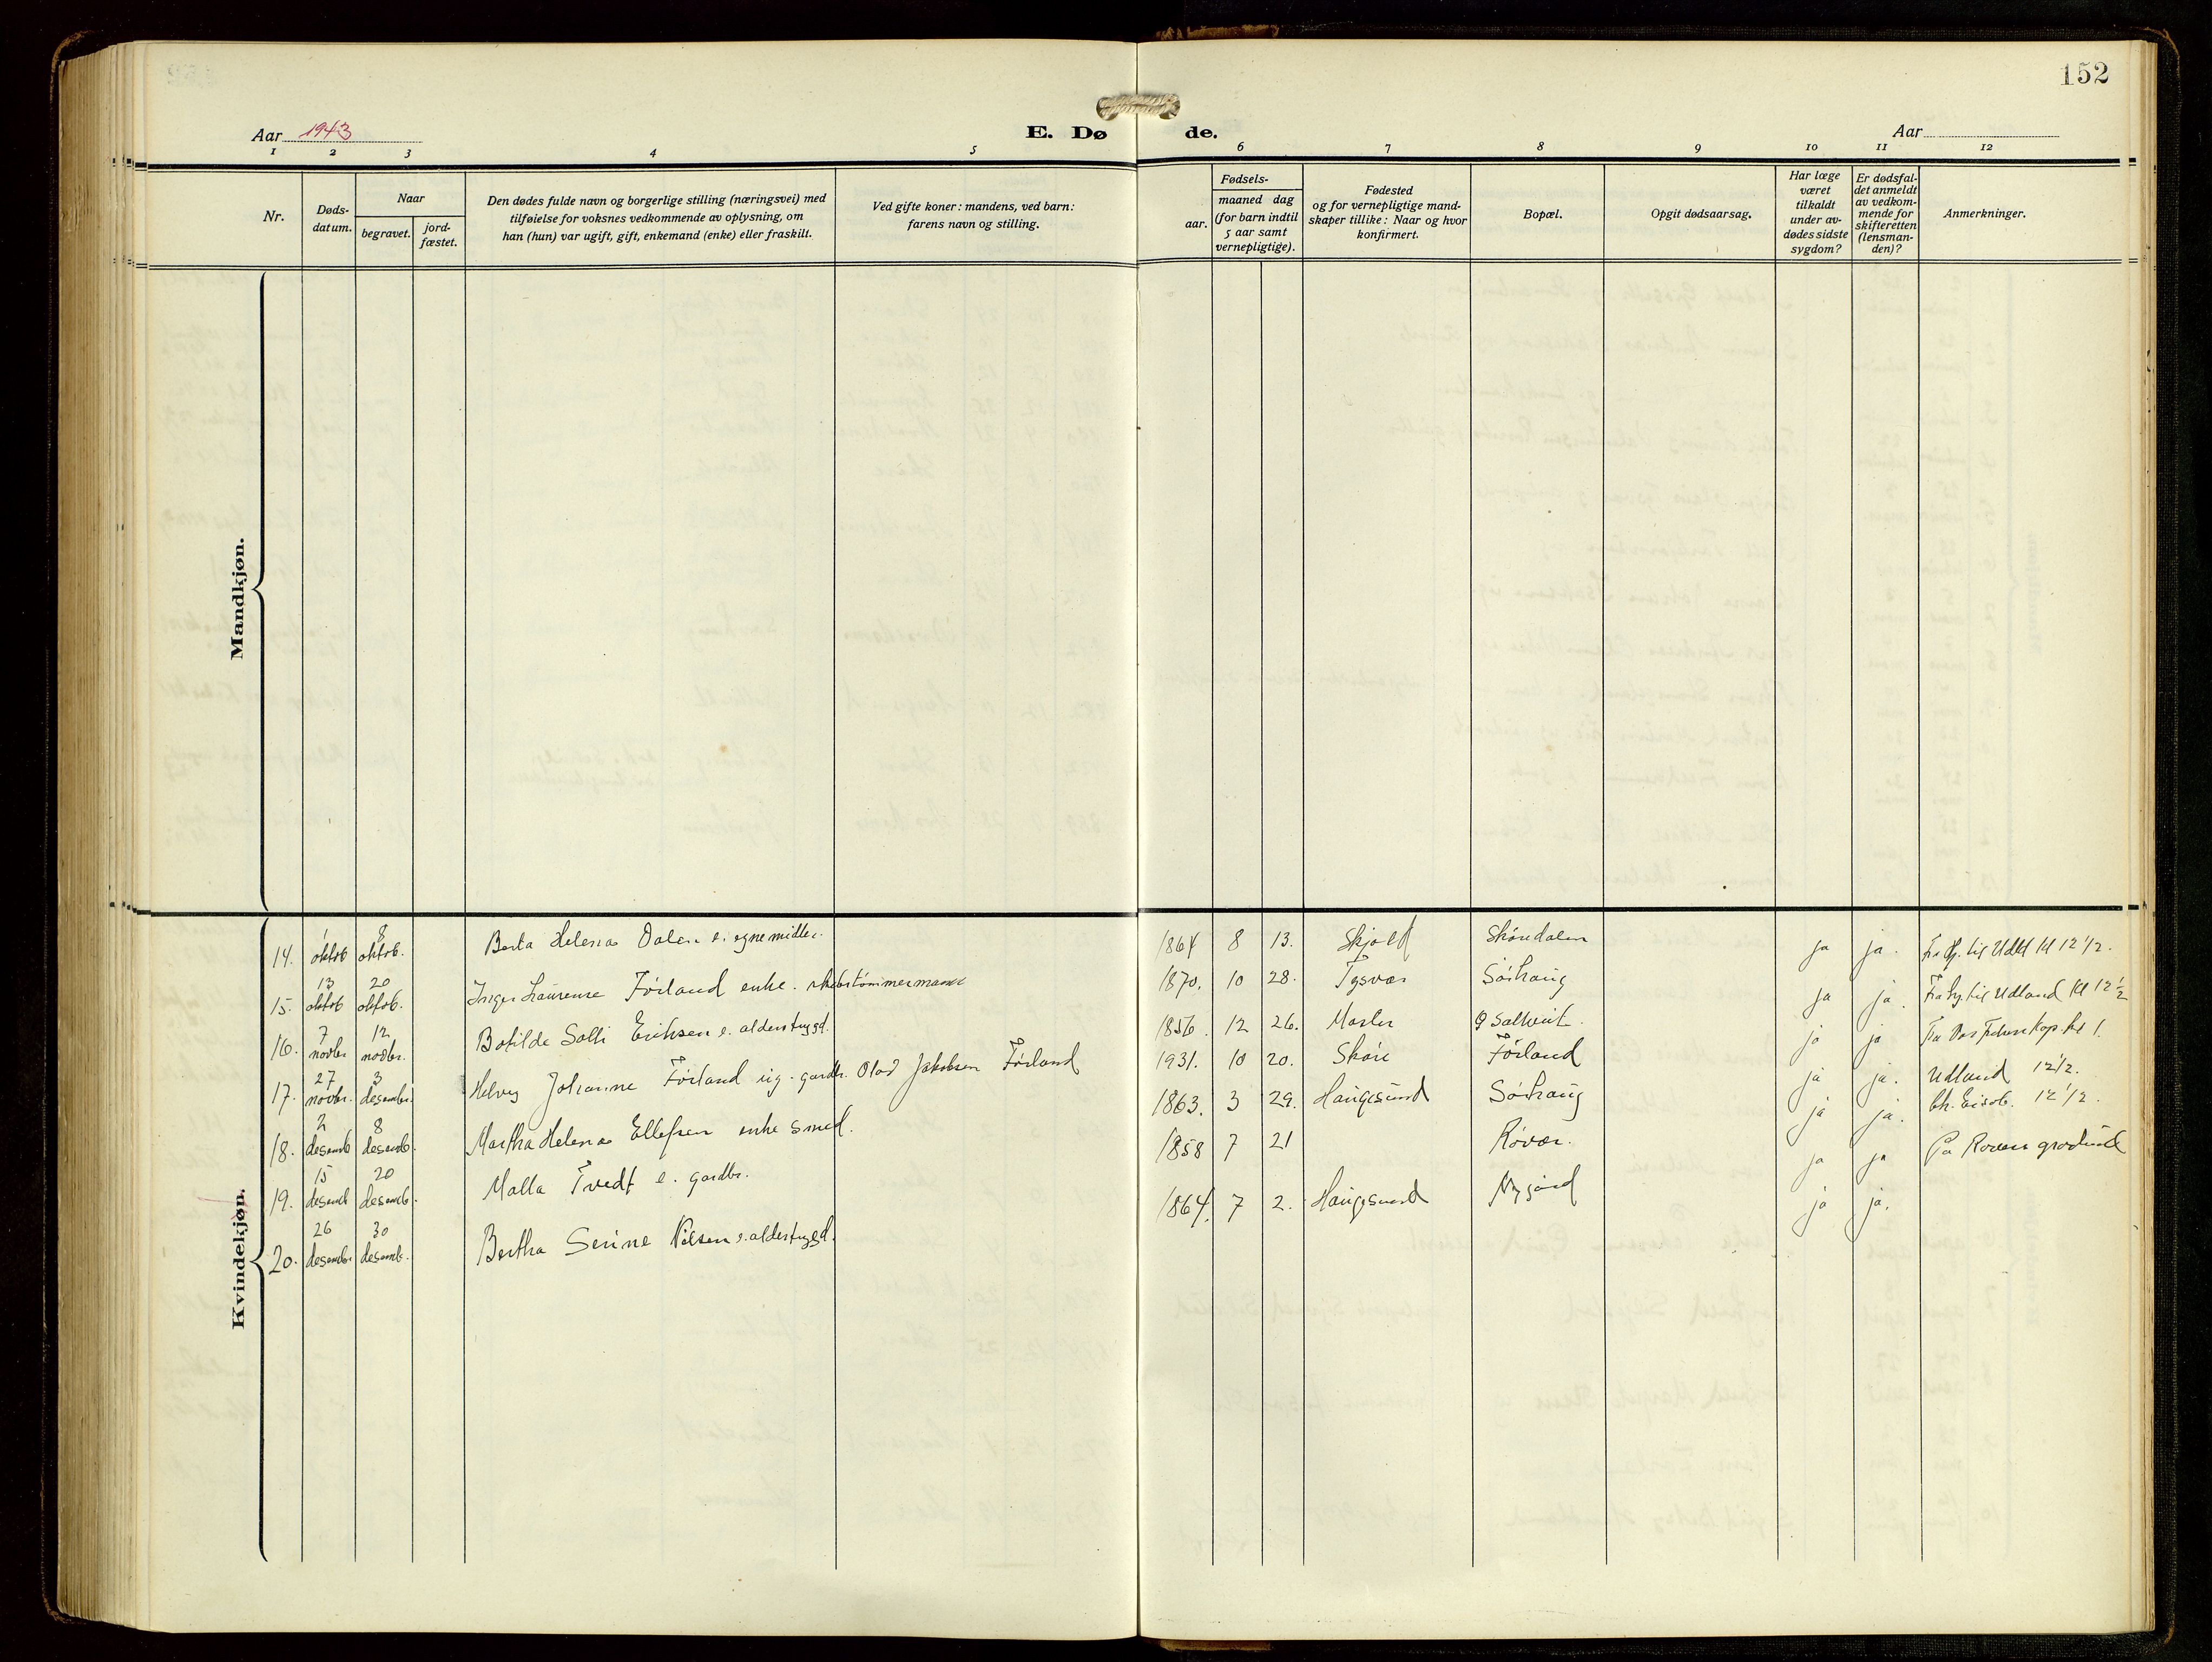 152
Aar 1943
E. Dø de.
Aar
1 2 3 4 5 6 7 8 9 10 11 12
Nr.
Døds-
datum.
Naar
begravet.
jord-
fæstet.
Den dødes fulde navn og borgerlige stilling (næringsvei) med
tilføielse for voksnes vedkommende av oplysning, om
han (hun) var ugift, gift, enkemand (enke) eller fraskilt.
Ved gifte koner: mandens, ved barn:
farens navn og stilling.
Fødsels-
aar.
maaned dag
(for barn indtil
5 aar samt
vernepligtige).
Fødested
og for vernepligtige mand-
skaper tillike: Naar og hvor
konfirmert.
Bopæl.
Opgit dødsaarsag.
Har læge
været
tilkaldt
under av-
dødes sidste
sygdom?
Er dødsfal-
det anmeldt
av vedkom-
mende for
skifteretten
(lensman-
den)?
Anmerkninger.
Mandkjøn.
Kvindekjøn.
14. 1 oktob 8 oktob. Berta Helena Dalen e. egne midler. 1864 8 13. Skjold Skåredalen ja ja. til Udld kl 12 1/2.
15. 13 oktob 20 oktob. Inger Laurense Förland enke. skibstømmermand 1870. 10 28. Tysvær Sørhaug ja ja. til Udland kl 12 1/2
16. 7 novbr 12 novbr. Botilde Solli Eriksen e. alderstrygd. 1856. 12 26. ja ja kl 1.
17. 27 novbr. 3 desember. Johanne Förland ug. gardbr. Olav Jakobsen Förland 1931. 10 20. Skåre Förland ja ja. Udland 12 1/2.
18. 2 desemb 8 desemb. Martha Helena Ellefsen enke smed. 1863. 3 29. Haugesund Sørhaug ja ja. 12 1/2.
19. 15 desemb 20 desemb. Malla Tvedt e. gardbr. 1858 7 21 Røvær. ja ja På
20. 26 desember 30 desemb. Bertha Serine Nilsen e. alderstrygd. 1864. 7 2. Haugesund Nygård ja ja.